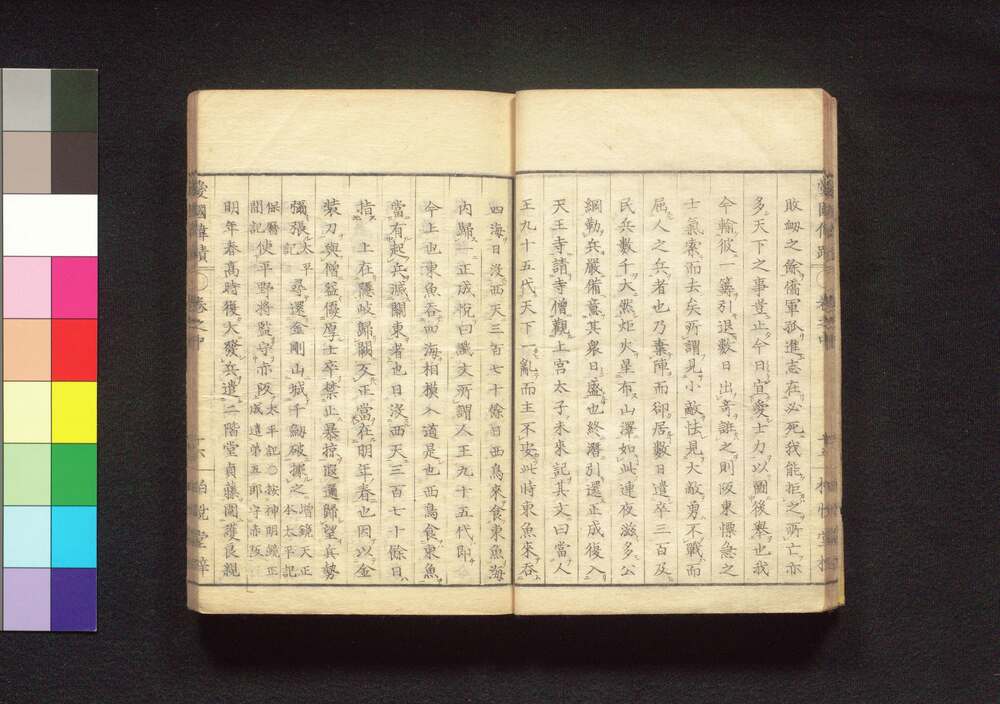 敗衂之餘衞軍孤進志在必死我能拒之所亡亦
多天下之事豈止今日宜愛士力以圖後擧也我
今輸彼一籌引退數日出奇誰之則阪東慓急之
士氣索而去矣所謂見小敵怯見大敵勇不戰而
屈人之兵者也乃棄陣而卻居數日遣卒三百及
民兵數千大爇炬火星布山澤如此連夜滋多公
綱勒兵嚴備意其衆日盛也終潛引還正成復入
天王寺請寺僧觀上宮太子未來記其文曰當人
王九十五代天下一亂而主不安此時東魚來吞
四海日沒西天三百七十餘日西鳥來食東魚海
內歸一正成悅曰讖文所謂人王九十五代卽
今上也東魚吞四海相模入道是也西鳥食東魚
當有起兵滅關東者也日沒西天三百七十餘日
指 上在隱岐歸闕反正當在明年春也因以金
裝刀與僧益優厚士卒禁止暴掠遐邇歸望兵勢
彌張 太平記 尋還金剛山城千劔破據之 增鏡天正本太平記
保曆間記 使平野將監守赤阪 太平記
明年春高時復大發兵遣二階堂貞藤圍護良親
愛國偉績 卷之中 十六 柏悅堂梓